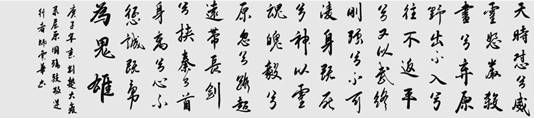 天時懟兮威
靈怒嚴殺
盡兮棄原
野出不入兮
往不返平
兮又以武終
剛強兮不可
凌身既死
兮神以靈
魂魄毅兮
原忽兮路超
遠帶長劍
兮挾秦弓首
身離兮心不
懲誠既勇
為鬼雄
庚子年 楚大夫
屈原國殤敬送
行者